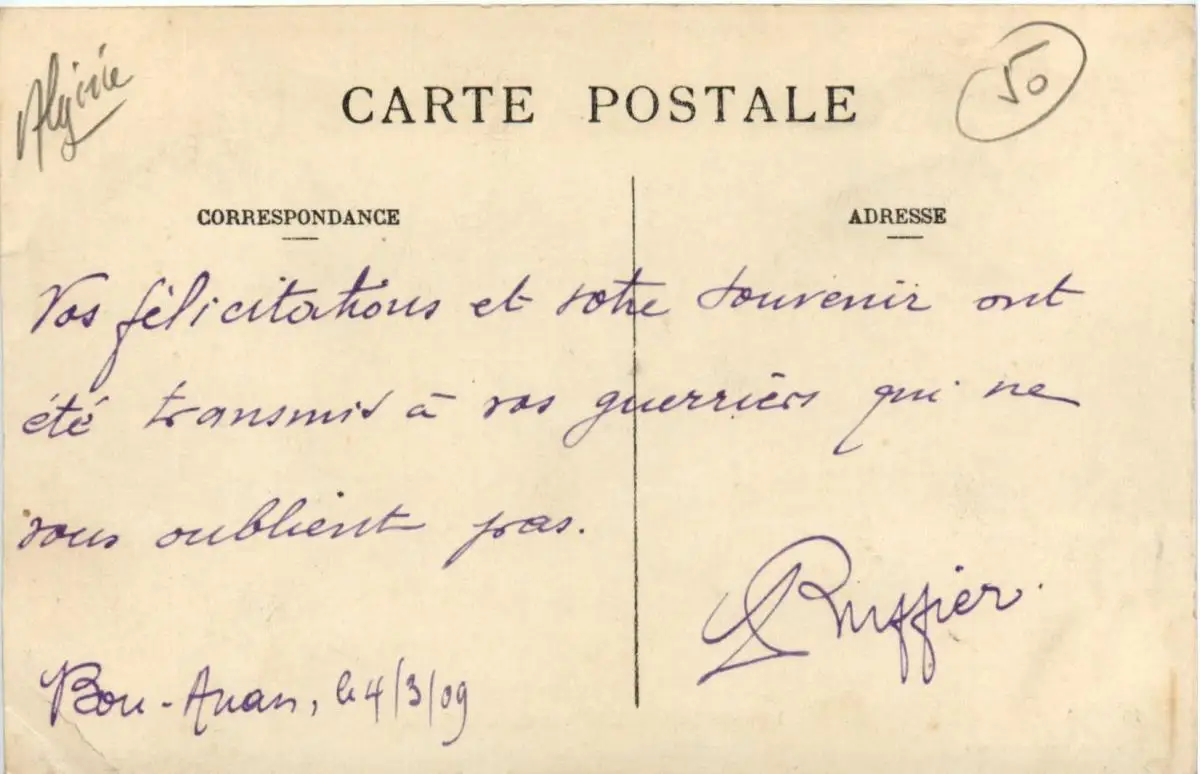 Algérie
50
CARTE POSTALE
CORRESPONDANCE
ADRESSE
Vos félicitations et votre souvenir ont
été transmis à vos guerriers qui ne
vous oublient pas.
Ruffier.
Bou-Anan, le 4/3/09